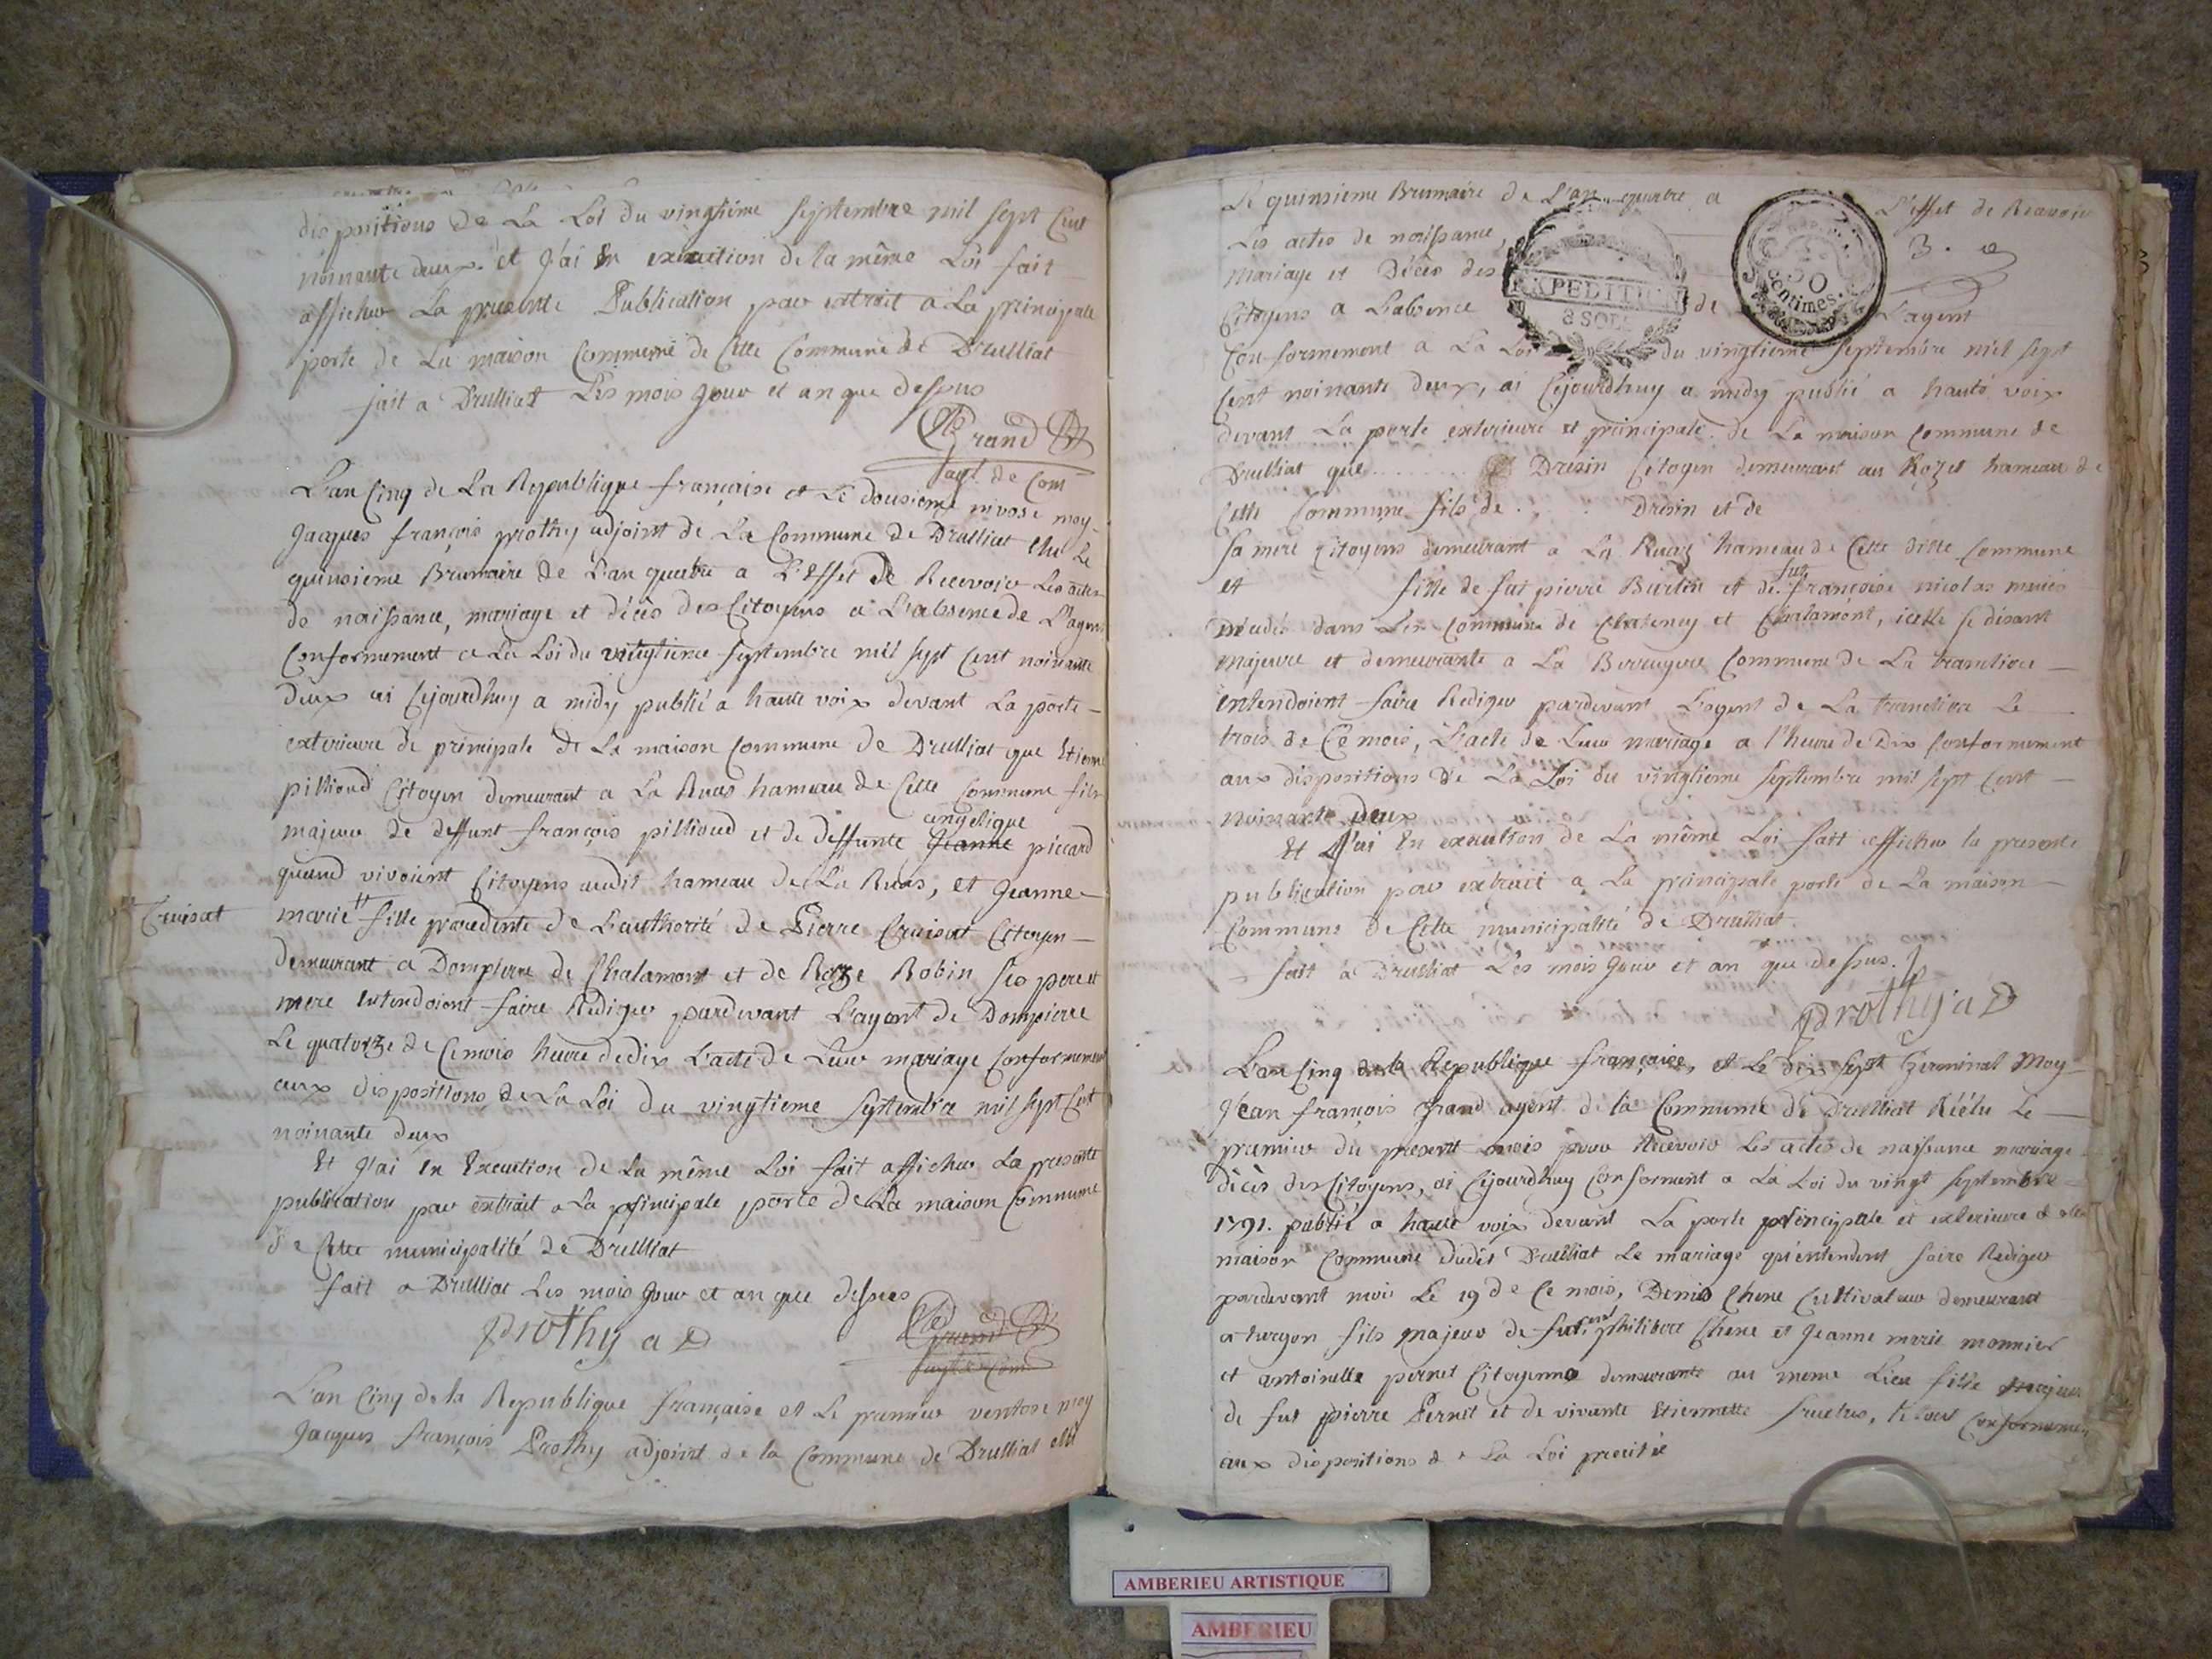 dispositions de La Loi du vingtieme septembre mil sept Cent
noinante deux. et J'ai En execution de la même Loi fait
afficher La presente Publication par extrait a La principale
porte de La maison Commune de Cette Commune de Druilliat
fait a Druilliat Les mois Jour et an que dessus
Grand
agt. de Com
L'an Cinq de La Republique française et Le dousieme nivose moy
Jacques françois prothy adjoint de La Commune de Druilliat Elu Le
quinsieme Brumaire de L'an quatre a L'Effet de Recevoir Les actes
de naissance, mariage et décès des Citoyens a L'absence de L'agent
Conformement a La Loi du vingtieme septembre mil sept Cent noinante
deux ai Cejourdhuy a midy publié a haute voix devant La porte
exterieure de principale de La maison Commune de Druilliat que Etienne
pillioud Citoyen demeurant a La Ruas hameau de Cette Commune fils
angelique
majeur de deffunt françois pillioud et de deffunte Jeanne piccard
quand vivoient Citoyens audit hameau de La Ruas, et Jeanne
Cruisat
marie fille procedente de L'authorité de Pierre Cruisat Citoyen
demeurant a Dompierre de Chalamont et de Roze Robin ses pere et
mere Entendoient faire Rediger pardevant L'agent de Dompierre
Le quatorze de Ce mois heure de dix L'acte de Leur mariage Conformement
aux dispositions de La Loi du vingtieme septembre mil sept Cent
noinante deux
Et J'ai En Execution de La même Loi fait afficher La presente
publication par extrait a La principale porte de La maison Commune
de Cette municipalité de Druilliat
fait a Druilliat Les mois Jour et an que dessus
prothy a D
Grand
agt de Com
L'an Cinq de la Republique française et Le premier ventose moy
Jacques françois Prothy adjoint de la Commune de Druilliat elu
Le quinsieme Brumaire de L'an quatre a L'effet de Recevoir
Les actes de naissance,
3. e
mariage et Décès des
EXPEDITION
8 SOLS
50
Centimes.
Citoyens a L'absence de L'agent
Conformement a La Loi du vingtieme septembre mil sept
Cent noinante deux, ai Cejourdhuy a midy publié a haute voix
devant La porte exterieure et principale de La maison Commune de
Druilliat que ........ Dresin Citoyen demeurant au Rozet hameau de
Cette Commune fils de . . . Dresin et de
sa mere Citoyens demeurant a La Ruaz hameau de Cette ditte Commune
fut
et fille de fut pierre Burlin et de françoise nicolas
décédés dans Les Commune de Chateney et Chalamont, icelle se disant
majeure et demeurante a La Commune de La tranclière
entendoient faire Rediger pardevant L'agent de La tranclière Le
trois de Ce mois, L'acte de Leur mariage a l'heure de Dix Conformement
aux dispositions de La Loi du vingtieme septembre mil sept Cent
noinante deux
Et J'ai En execution de La même Loi fait afficher la presente
publication par extrait a La principale porte de La maison
Commune de Cette municipalité de Druilliat.
fait a Druilliat Les mois Jour et an que dessus.
prothy a D
L'an Cinq de la Republique française, et Le dix sept Germinal Moy
Jean françois Grand agent de la Commune de Druilliat Réélu Le
premier du present mois pour Recevoir Les actes de naissance mariage
décès des Citoyens, ai Cejourdhuy Conforment a La Loi du vingt septembre
1791. publié a haute voix devant La porte principale et exterieure de la
maison Commune dudit Druilliat Le mariage qu'entendent faire Rediger
pardevant moi Le 19 de Ce mois, Denis Chene Cultivateur demeurant
a turgon fils majeur de fut philibert Chene et Jeanne marie monnier
et antoinette pernet Citoyenne demeurante au meme Lieu fille majeure
de fut pierre Pernet et de vivante Etiennette fructus, Le tout Conformement
aux dispositions de La Loi precitée
AMBERIEU ARTISTIQUE
AMBERIEU